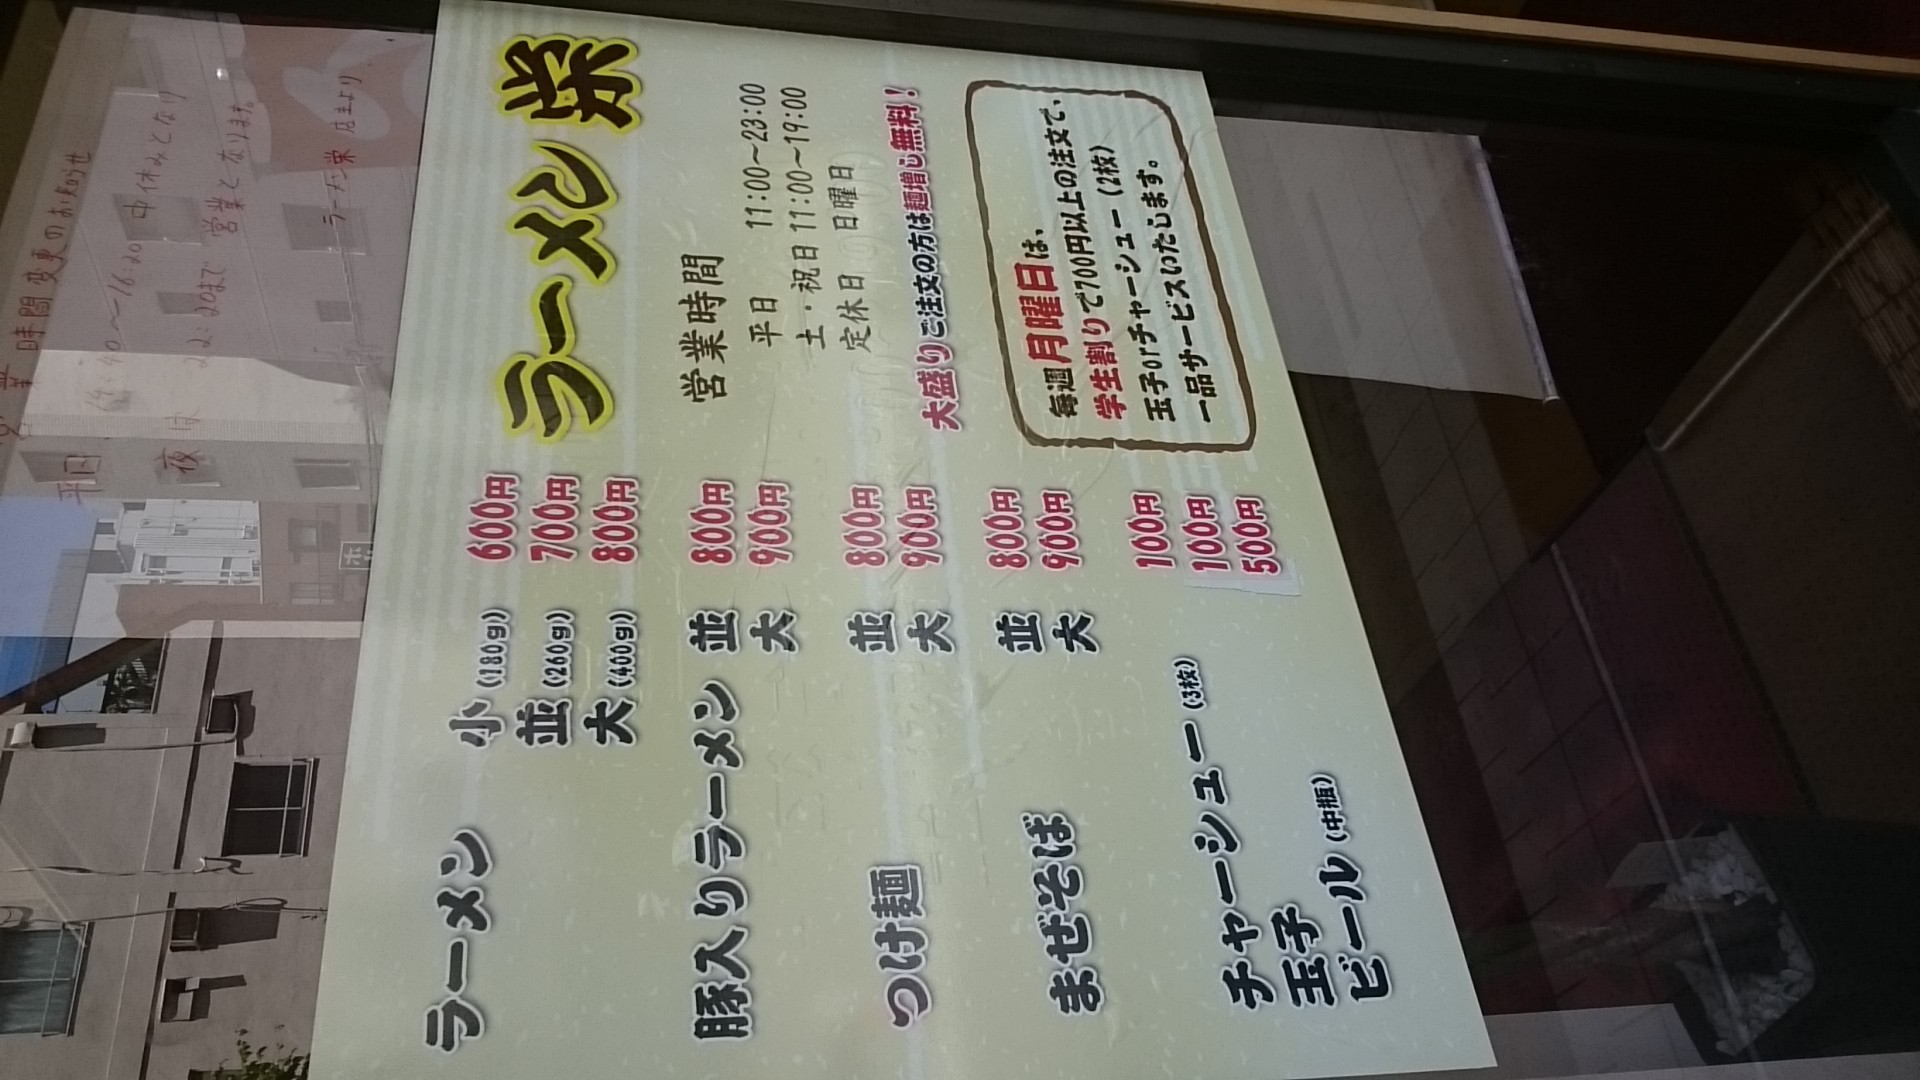 営業時間変更のお知らせ
平日
14:40～16:20 中休みとなり
夜は 22:20まで 営業となります。
ラーメン栄 店主より
ラーメン 小(180g) 600円
並(260g) 700円
大(400g) 800円
豚入りラーメン 並 800円
大 900円
つけ麺 並 800円
大 900円
まぜそば 並 800円
大 900円
チャーシュー(3枚) 100円
玉子 100円
ビール(中瓶) 500円
ラーメン 栄
営業時間
平日 11:00～23:00
土・祝日 11:00～19:00
定休日 日曜日
大盛りご注文の方は麺増し無料!
毎週月曜日は、
学生割りで700円以上の注文で、
玉子orチャーシュー(2枚)
一品サービスいたします。